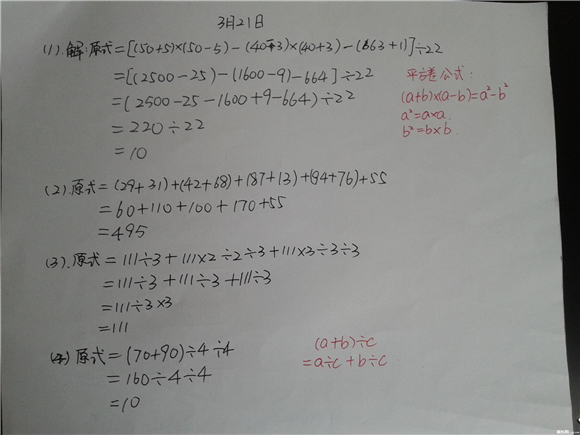 3月21日
(1).解:原式=[(50+5)×(50-5)-(40-3)×(40+3)-(663+1)]÷22
=[(2500-25)-(1600-9)-664]÷22
=(2500-25-1600+9-664)÷22
=220÷22
=10
平方差公式:
(a+b)×(a-b)=a²-b²
a²=a×a.
b²=b×b.
(2).原式=(29+31)+(42+68)+(87+13)+(94+76)+55
=60+110+100+170+55
=495
(3).原式=111÷3+111×2÷2÷3+111×3÷3÷3
=111÷3+111÷3+111÷3
=111÷3×3
=111
(4)原式=(70+90)÷4÷4
=160÷4÷4
=10
(a+b)÷c
=a÷c+b÷c.